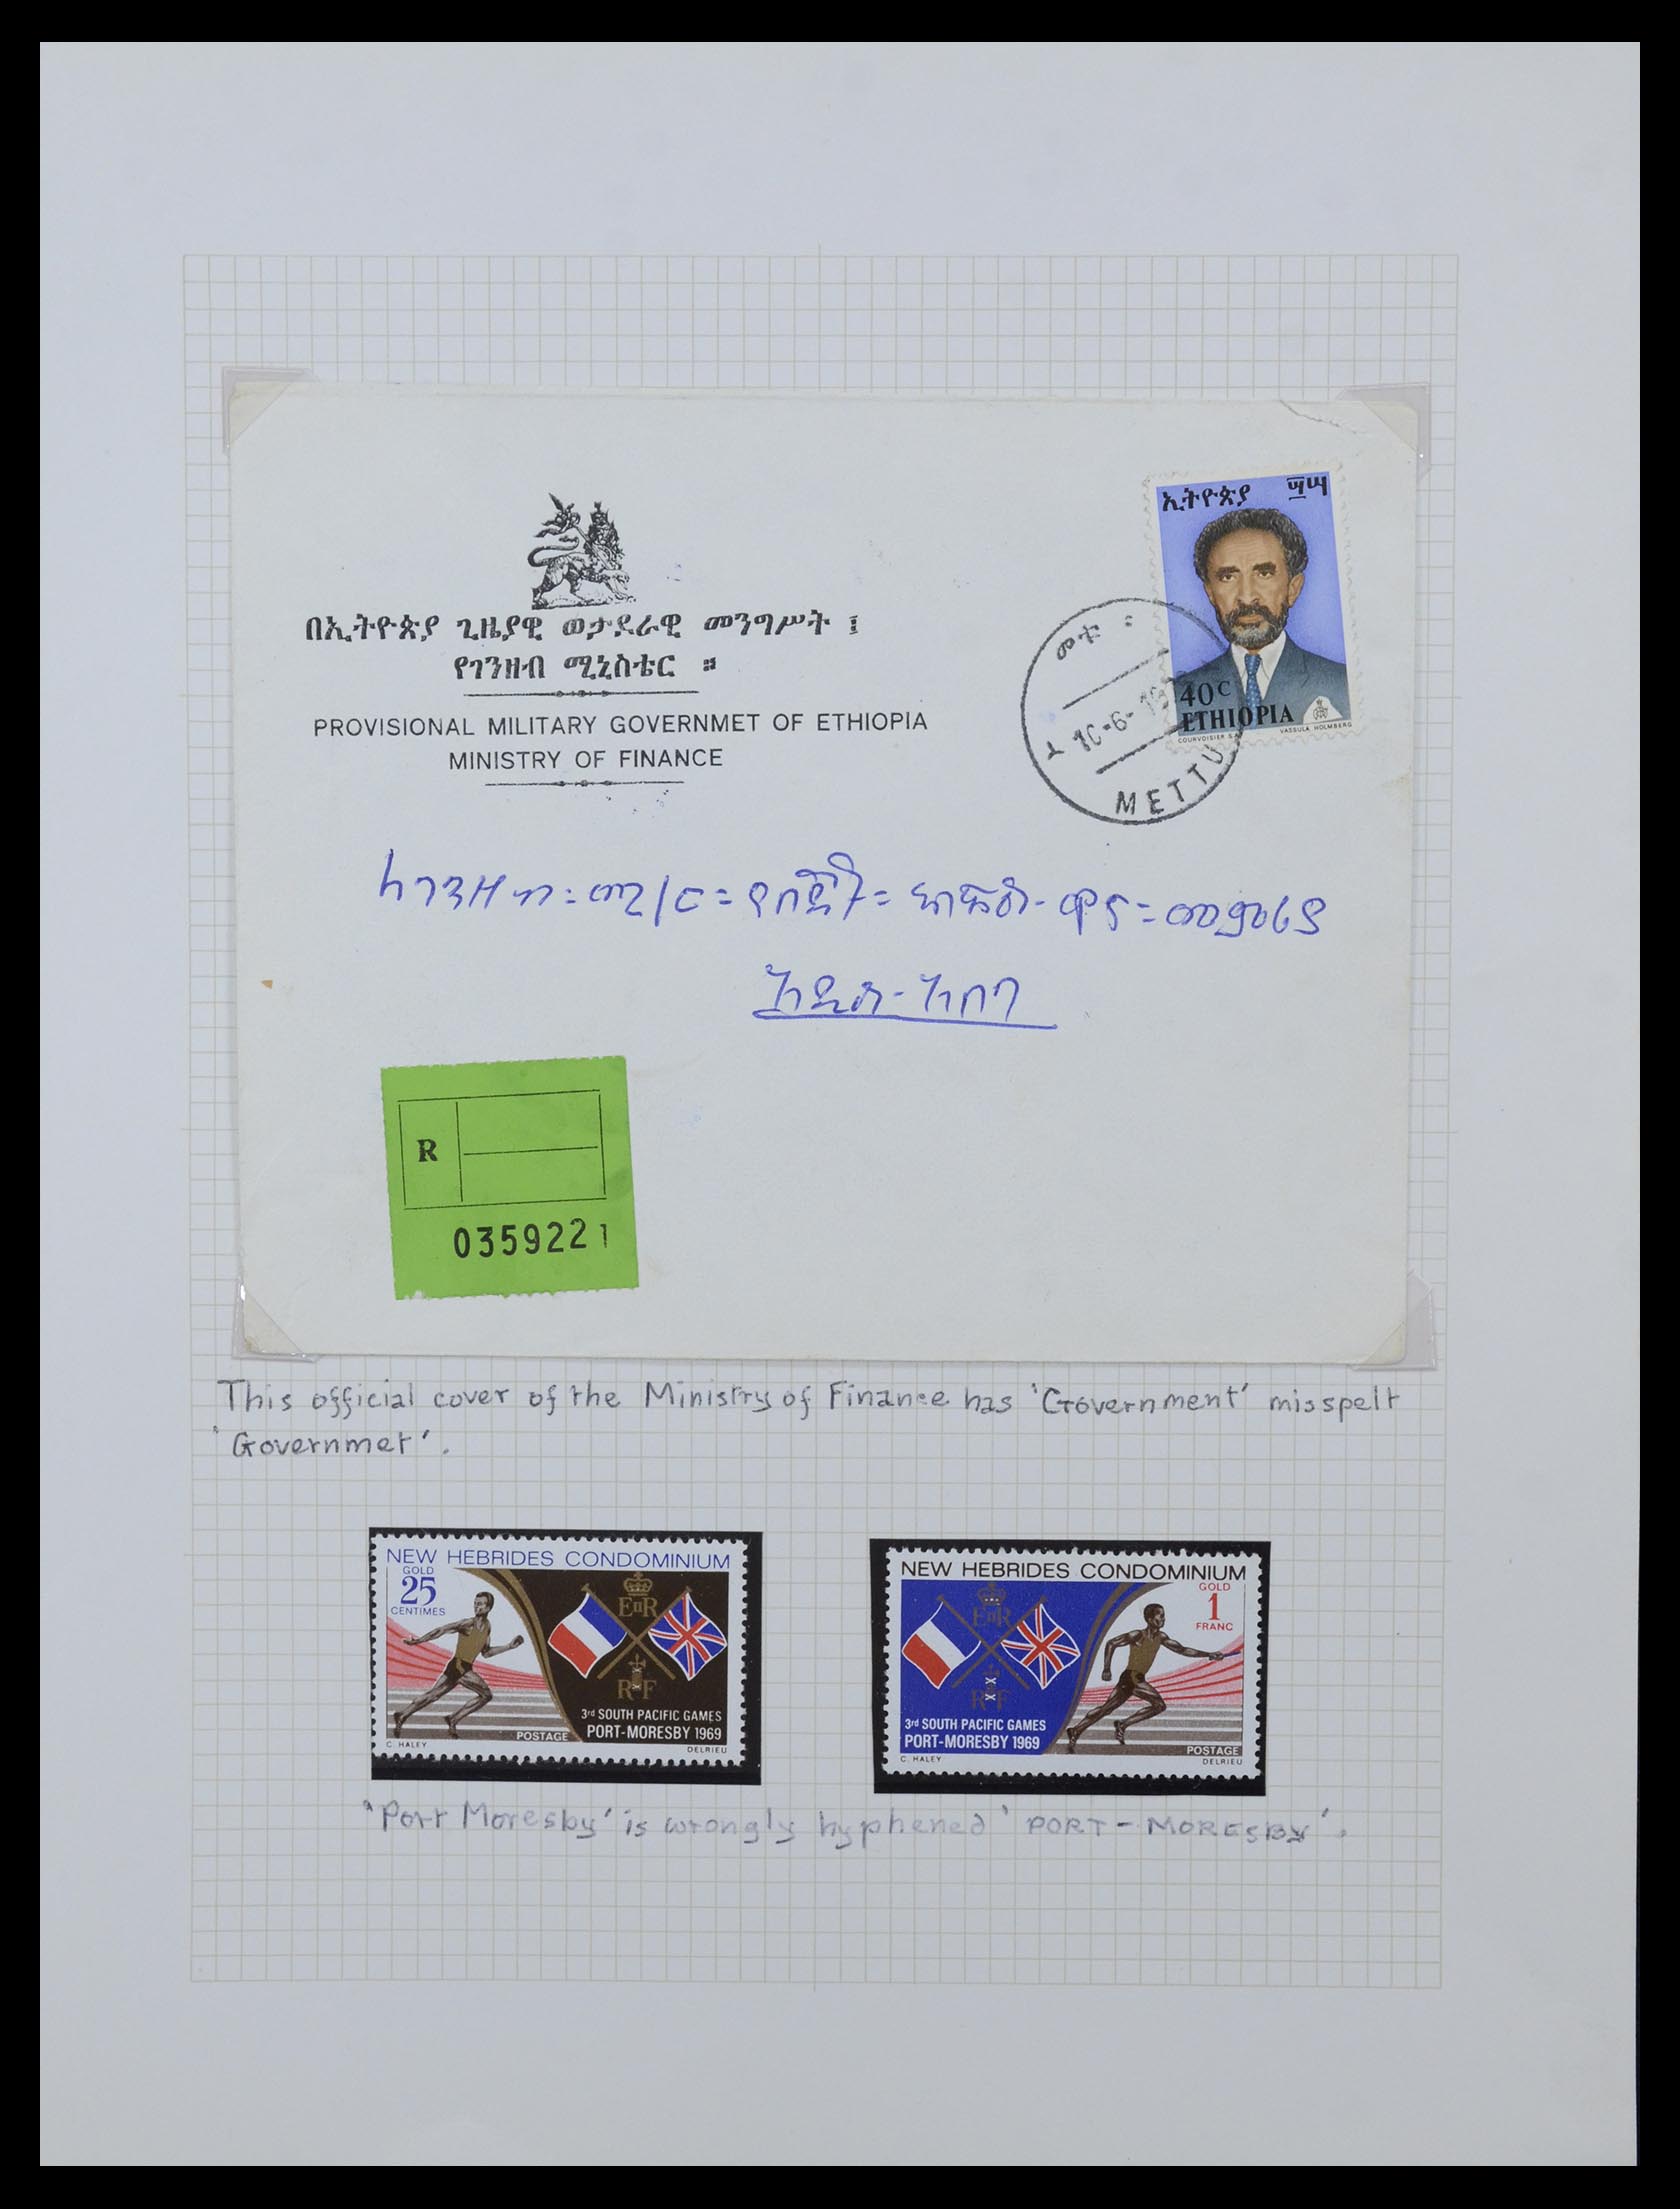 ኢትዮጵያ ፵ሣ
በኢትዮጵያ ጊዜያዊ ወታደራዊ መንግሥት ፤
የገንዘብ ሚኒስቴር ።
PROVISIONAL MILITARY GOVERNMET OF ETHIOPIA
MINISTRY OF FINANCE
40c
ETHIOPIA
COURVOISIER S.A. VASSULA HOLMBERG
መቱ ፡
10-6-19
METTU
አዲስ-አበባ
R
0359221
This official cover of the Ministry of Finance has 'Government' misspelt
'Governmet'.
NEW HEBRIDES CONDOMINIUM
GOLD
25
CENTIMES
EIIR
RF
3rd SOUTH PACIFIC GAMES
PORT-MORESBY 1969
POSTAGE
C. HALEY DELRIEU
NEW HEBRIDES CONDOMINIUM
GOLD
1
FRANC
EIIR
RF
3rd SOUTH PACIFIC GAMES
PORT-MORESBY 1969
POSTAGE
C. HALEY DELRIEU
"Port Moresby' is wrongly hyphened 'PORT-MORESBY'.